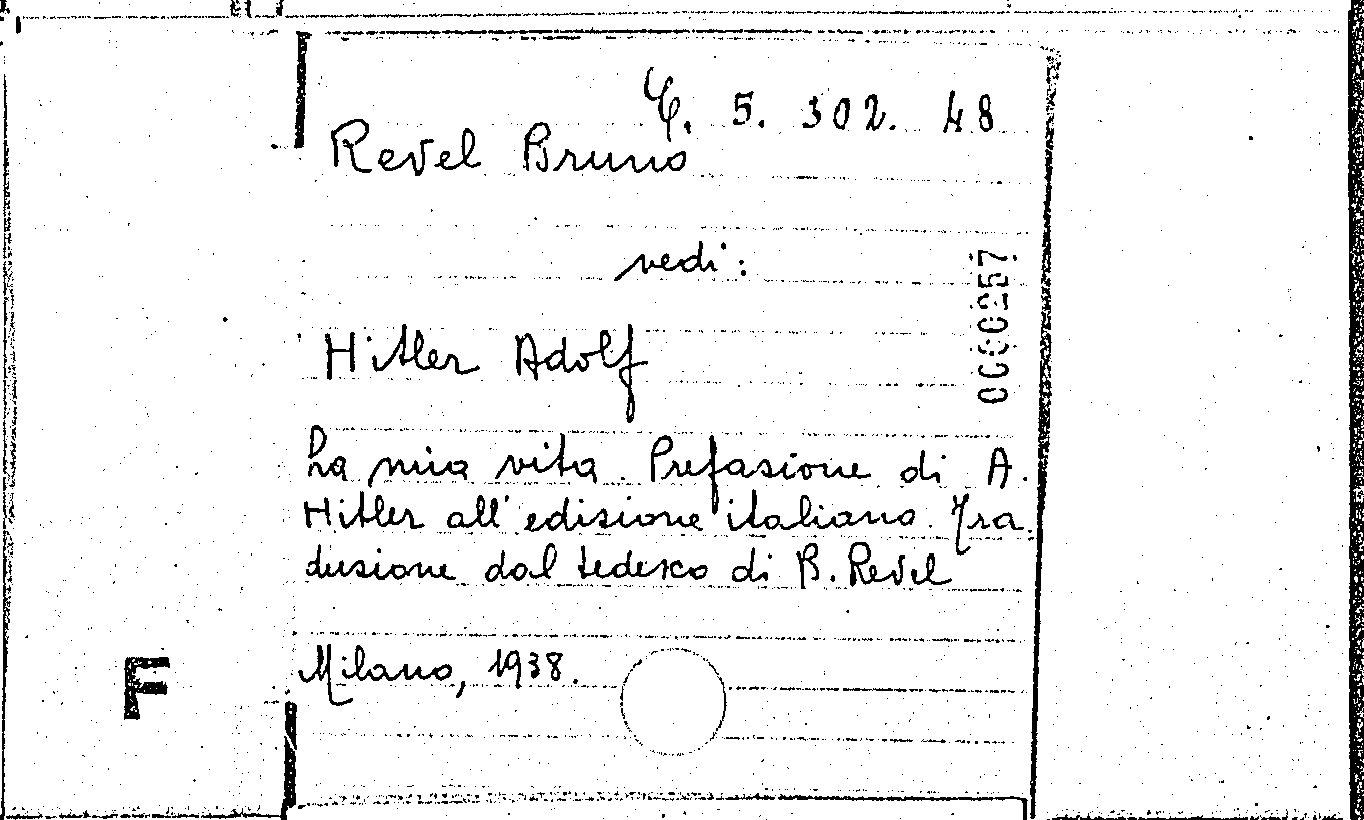 C. 5. 302. 48
Revel Bruno
vedi:
0000257
Hitler Adolf
La mia vita. Prefazione di A.
Hitler all'edizione italiana. Tra
duzione dal tedesco di B. Revel
Milano, 1938.
F